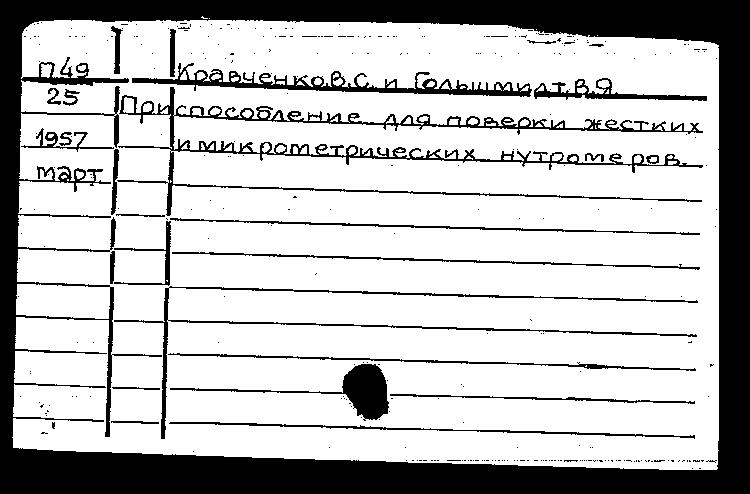 П49 Кравченко, В.С. и Гольшмидт, В.Я.
25 Приспособление для поверки жестких
1957 и микрометрических нутромеров.
март